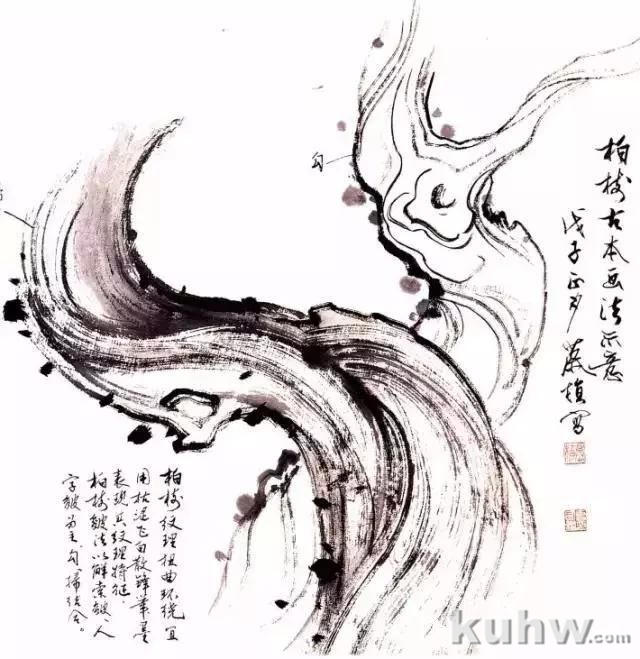 柏树古本画法示意
戊子正月
写
勾
柏树纹理扭曲环绕宜
用枯湿飞白散锋筆墨
表现其纹理特征.
柏树皴法以解索皴、人
字皴为主，勾、掃结合。
kuhw.com